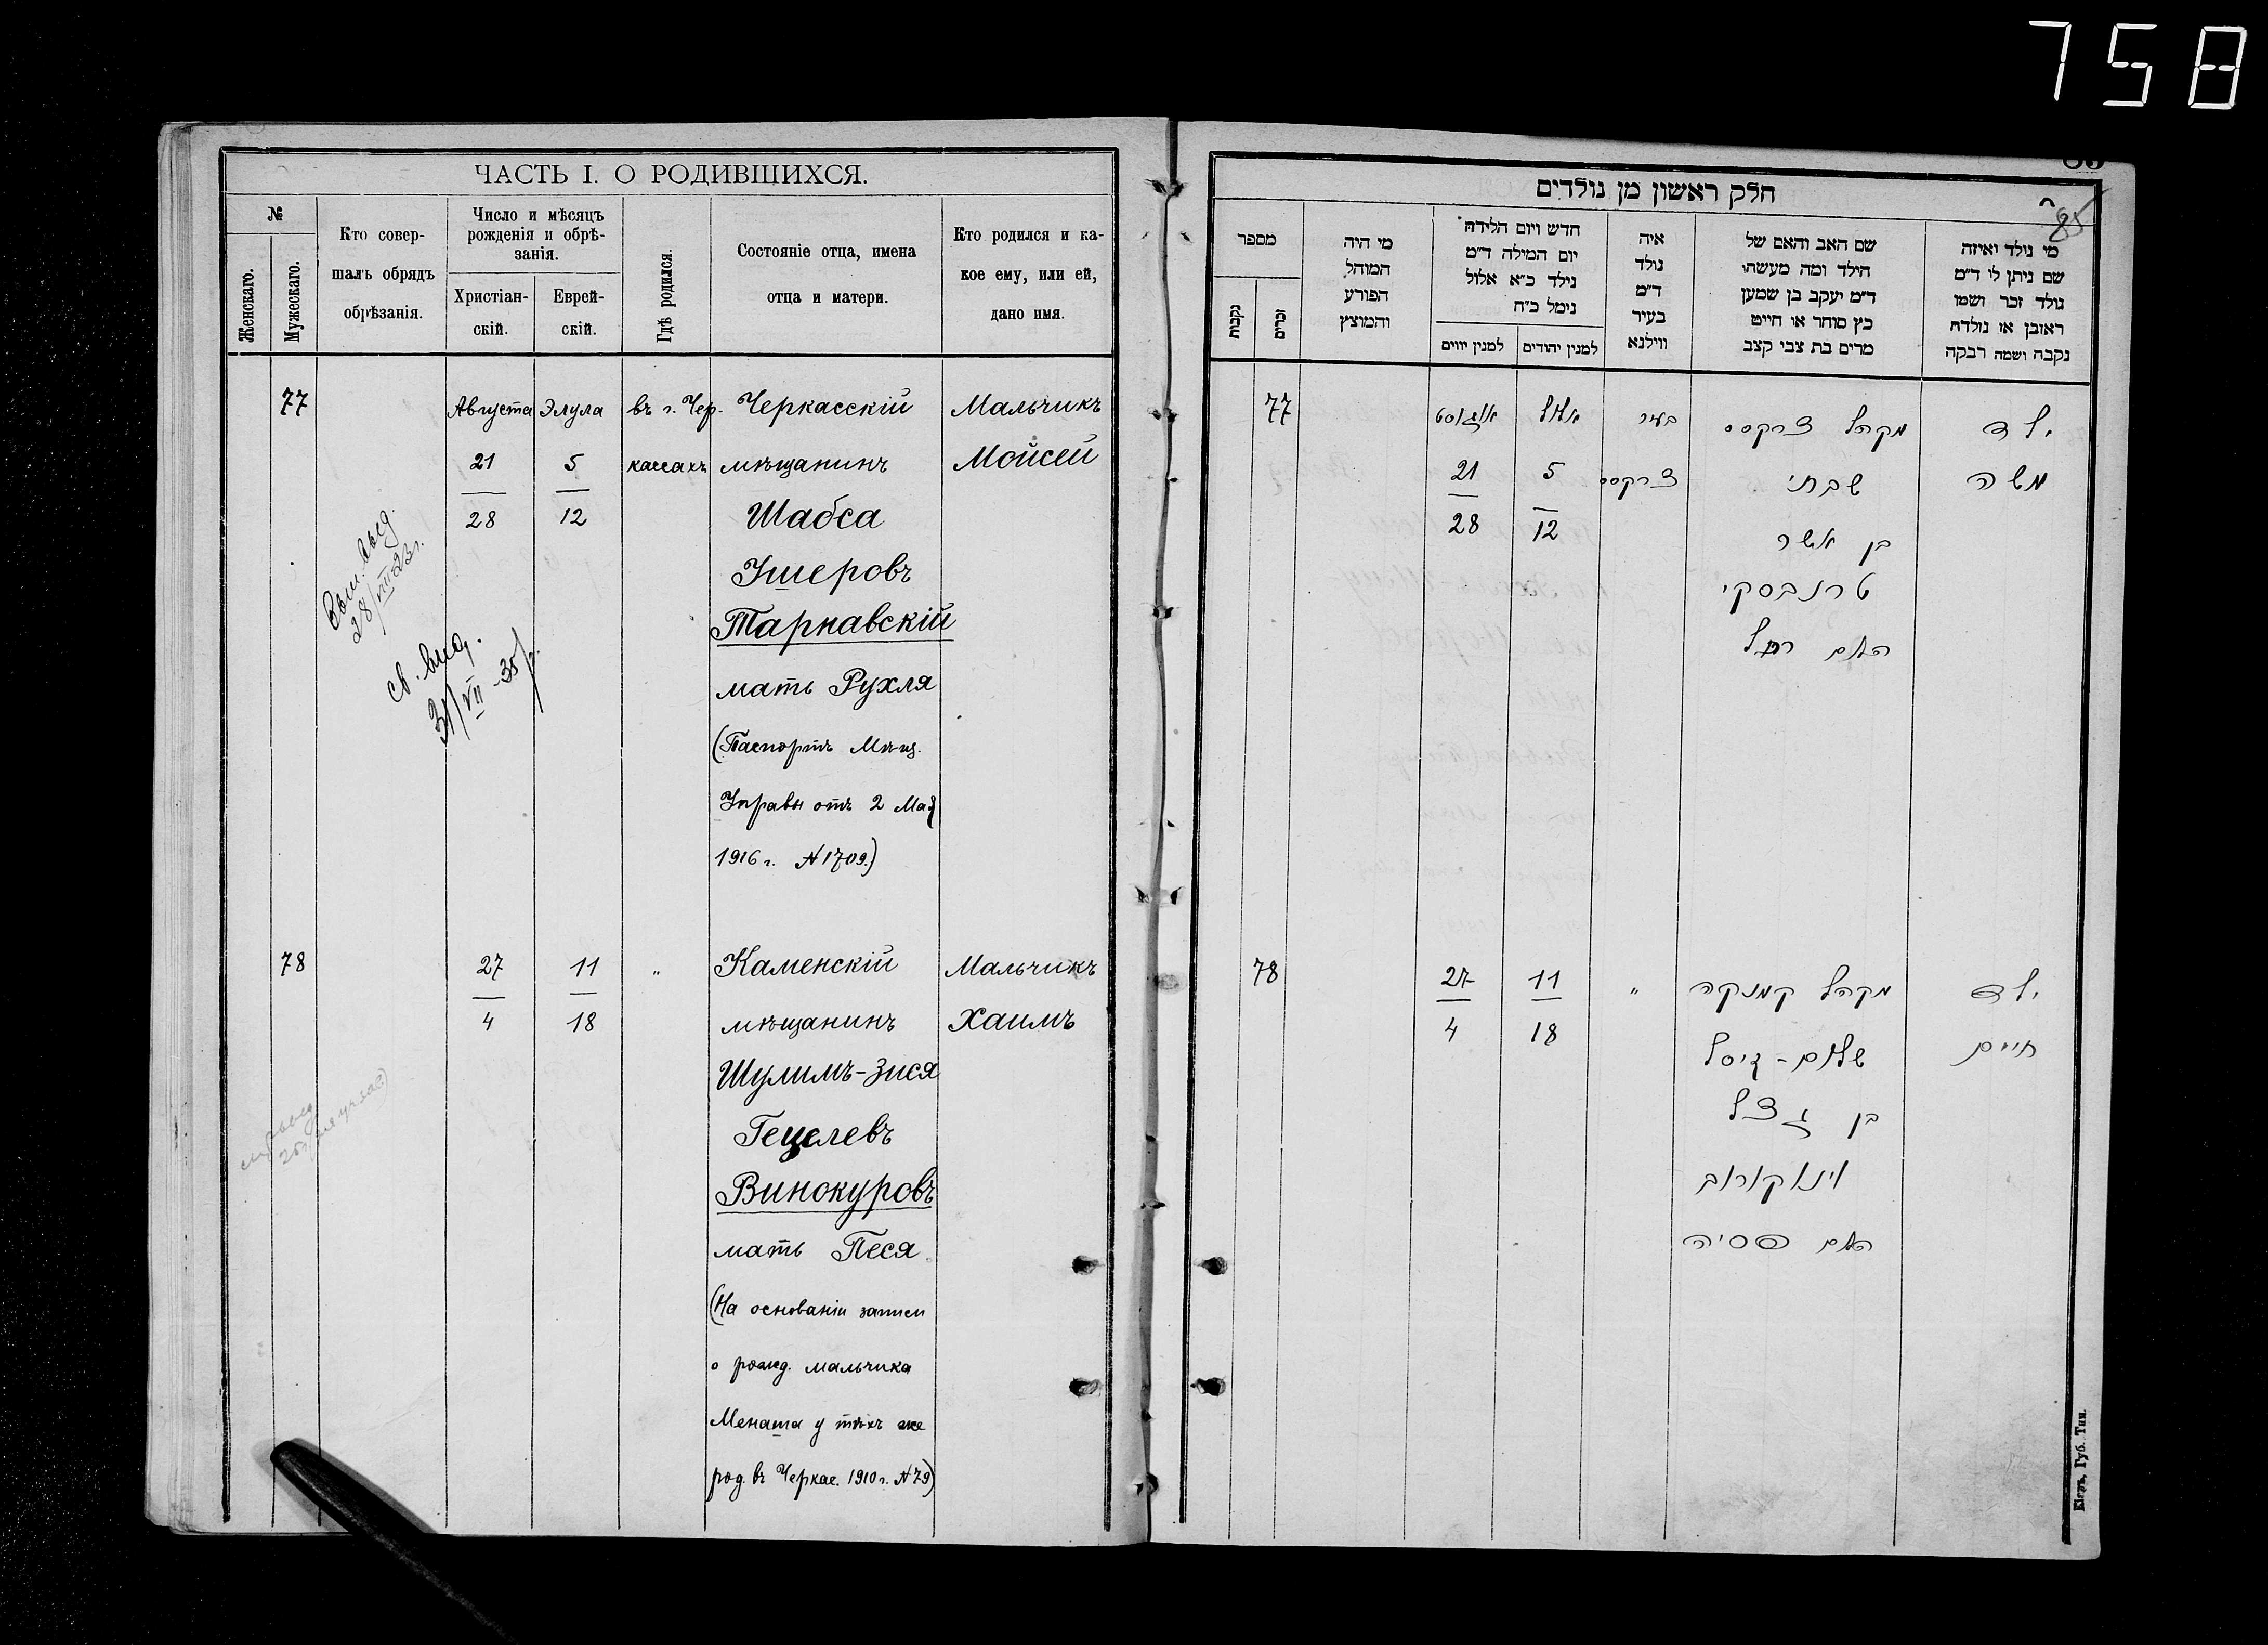 758
ЧАСТЬ I. О РОДИВШИХСЯ.
№
Женскаго.
Мужескаго.
Кто совер-
шалъ обрядъ
обрѣзанія.
Число и мѣсяцъ
рожденія и обрѣ-
занія.
Христіан-
скій.
Еврей-
скій.
Гдѣ родился.
Состояніе отца, имена
отца и матери.
Кто родился и ка-
кое ему, или ей,
дано имя.
77 Августа Элула въ г. Чер- Черкасскій Мальчикъ
21 5 кассахъ мѣщанинъ Мойсей
28 12 Шабса
Ушеровъ
Тарнавскій
мать Рухля
(Паспортъ Мѣщ.
Управы отъ 2 Мая
1916 г. № 1709.)
28/VIII 23г.
св. выд.
31/VII - 35 г.
78 27 11 " Каменскій Мальчикъ
4 18 мѣщанинъ Хаимъ
Шулимъ-Зися
Гецелевъ
Винокуровъ
мать Песя
(На основаніи записи
о рожд. мальчика
Менаша у тѣхъ же
род. въ Черкас. 1910 г. № 79)
85
חלק ראשון מן נולדים
מי נולד ואיזה
שם ניתן לו ד״מ
נולד זכר ושמו
ראובן או נולדה
נקבה ושמה רבקה
שם האב והאם של
הילד ומה מעשהו
ד״מ יעקב בן שמעון
כץ סוחר או חייט
מרים בת צבי קצב
איה
נולד
ד״מ
בעיר
ווילנא
חדש ויום הלידה
יום המילה ד״מ
נילד כ״א אלול
נימל כ״ח
למנין יהודים
למנין יווים
מי היה
המוהל
הפורע
והמוצץ
מספר
זכרים
נקבות
ילד מקהל צרקסס בעיר אלול אויגוסט 77
משה שבתי צרקסס 5 21
בן אשר 12 28
טרנבסקי
האם רחל
ילד מקהל קמנקה " 11 27 78
חיים שלום-זיסל 18 4
בן געצל
וינוקורוב
האם פסיה
Кіевъ, Губ. Тип.